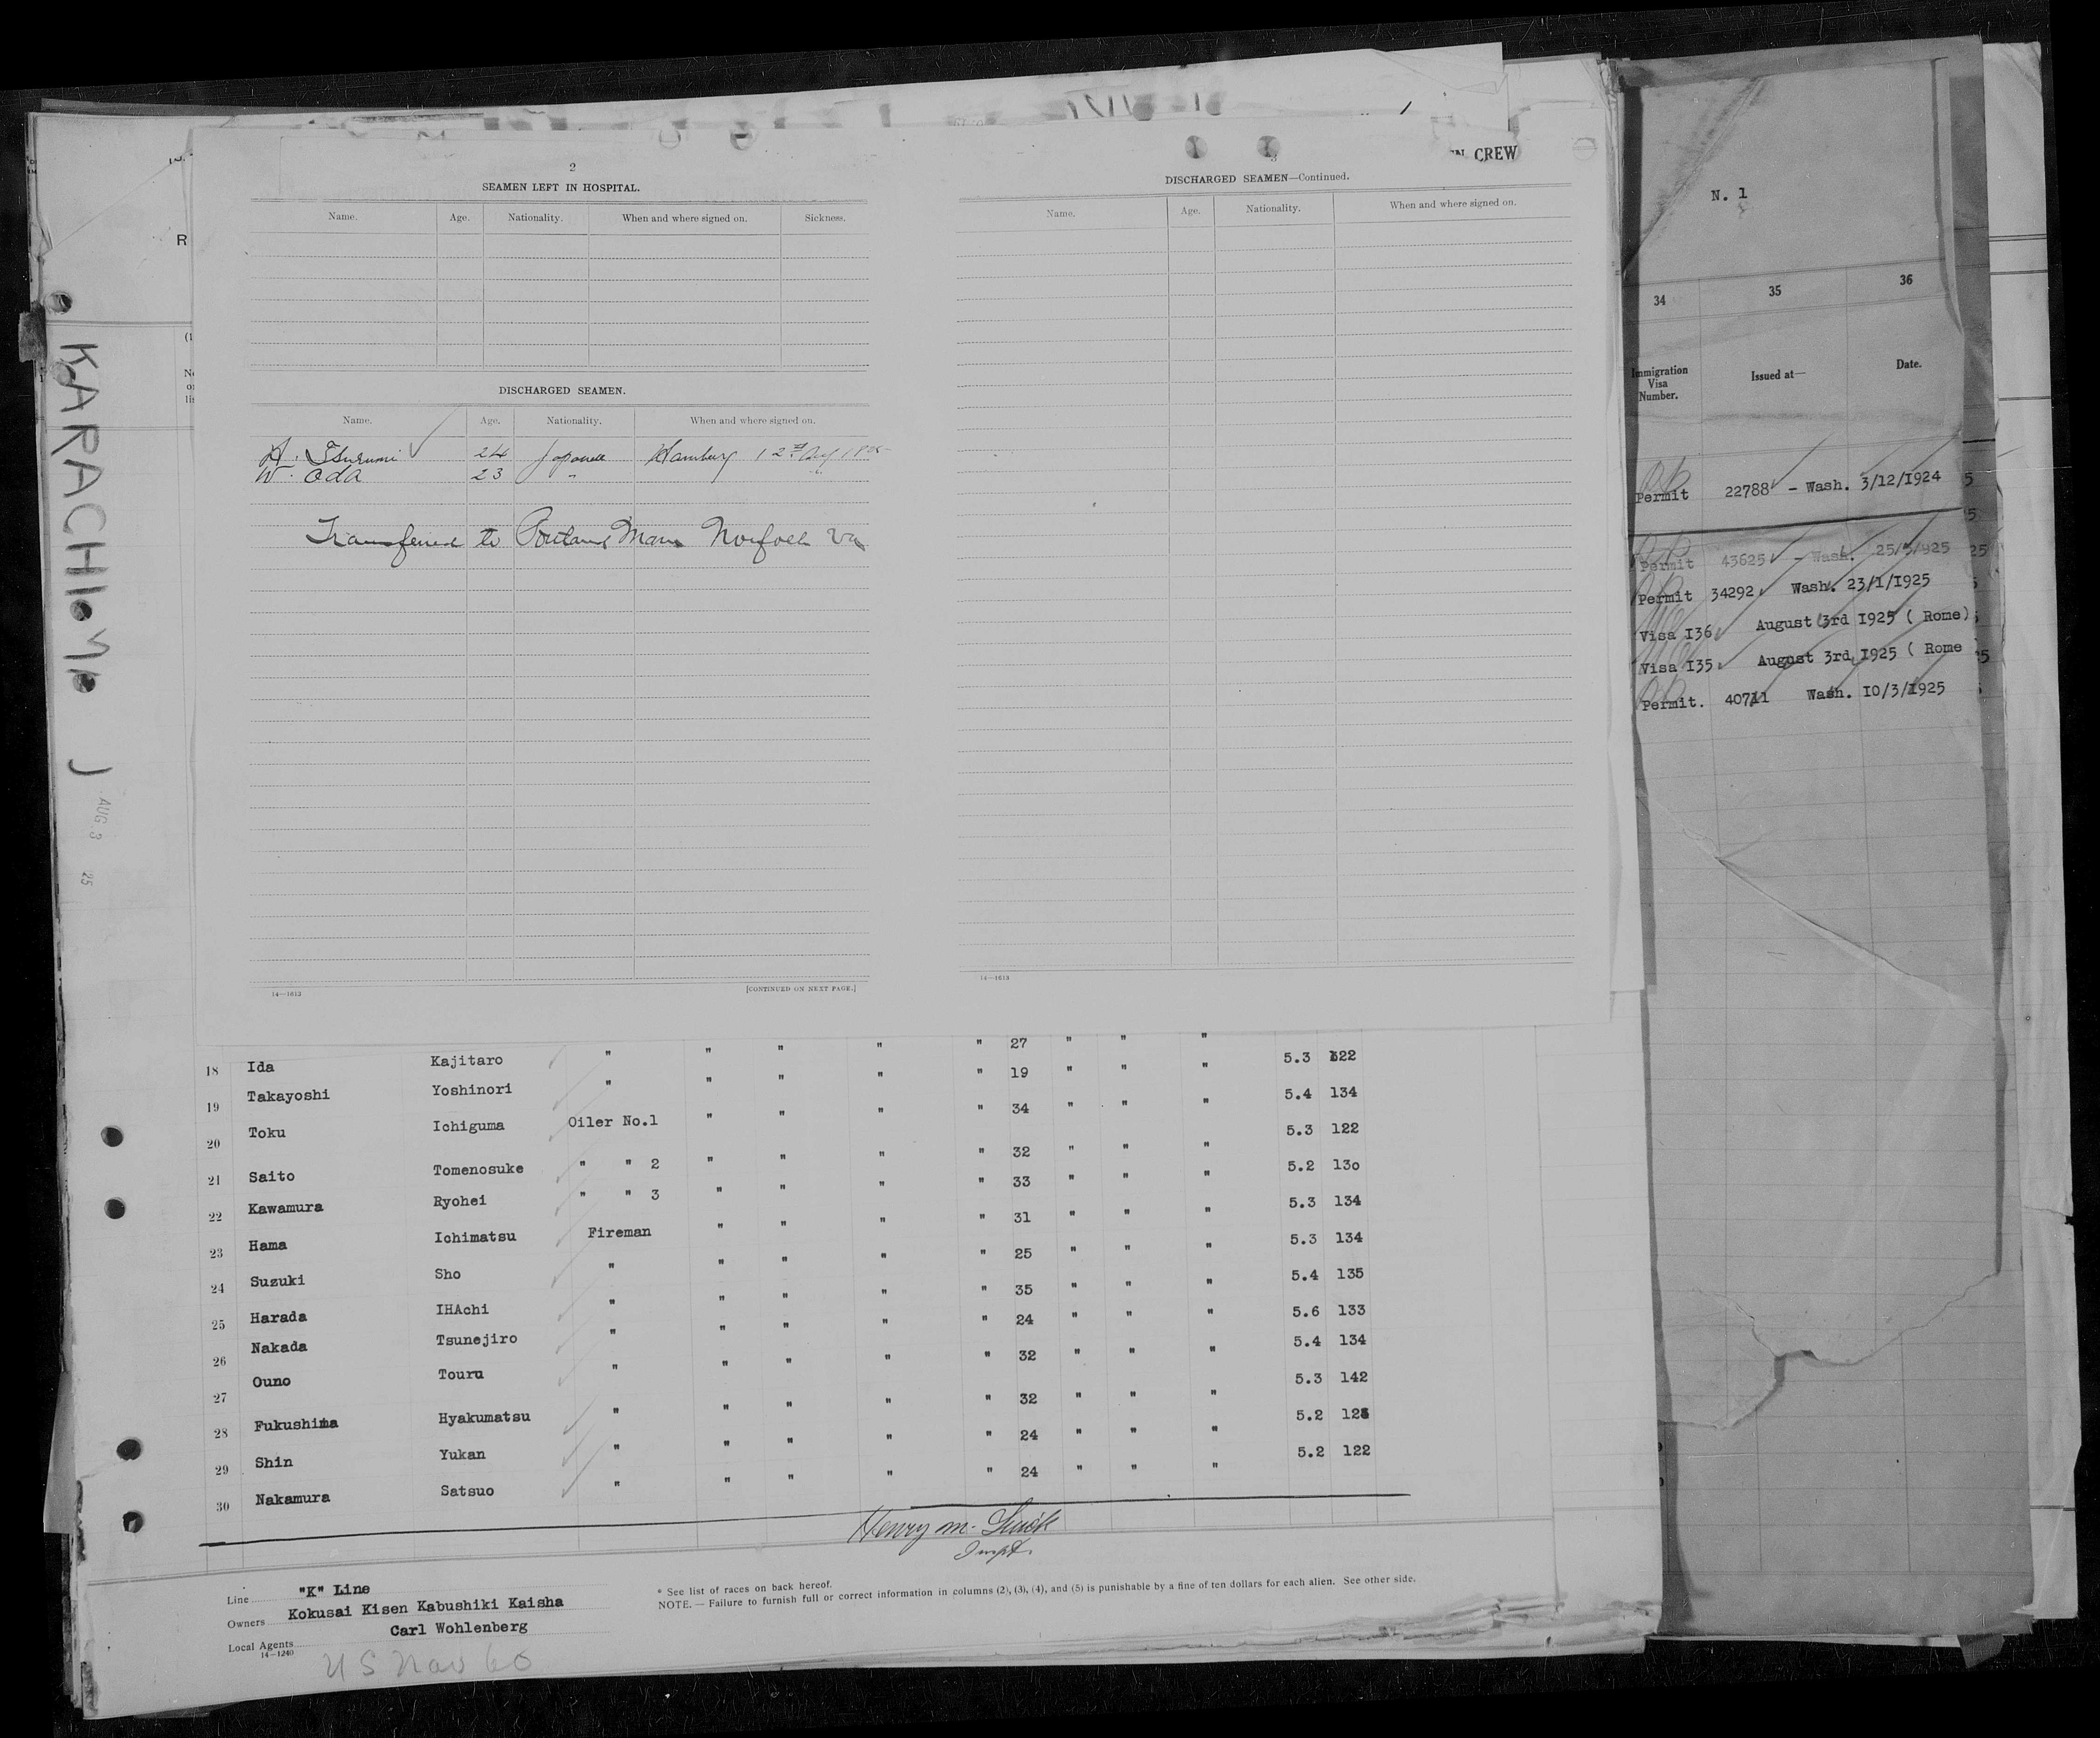 KARACHI
AUG. 3 25
CREW
2
SEAMEN LEFT IN HOSPITAL.
Name. Age. Nationality. When and where signed on. Sickness.
DISCHARGED SEAMEN.
Name. Age. Nationality. When and where signed on.
A. Tsurumi 24 Japanese Hamburg 12th Aug
W. Oda 23 "
Transferred to Maru Norfolk Va
14—1613 [CONTINUED ON NEXT PAGE.]
3
DISCHARGED SEAMEN—Continued.
Name. Age. Nationality. When and where signed on.
14—1613
N. 1
34 35 36
Immigration Visa Number. Issued at— Date.
Permit 22788 - Wash. 3/12/1924
Permit 43625 - Wash. 25/5/925
Permit 34292 Wash. 23/1/1925
Visa I36 August 3rd I925 ( Rome)
Visa I35 August 3rd I925 ( Rome
Permit. 40711 Wash. IO/3/1925
" " " " " 27 " " "
18 Ida Kajitaro " " " " " 19 " " " 5.3 122
19 Takayoshi Yoshinori " " " " 34 " " " 5.4 134
20 Toku Ichiguma Oiler No.1 " " " " 32 " " " 5.3 122
21 Saito Tomenosuke " " 2 " " " " 33 " " " 5.2 13o
22 Kawamura Ryohei " " 3 " " " " 31 " " " 5.3 134
23 Hama Ichimatsu Fireman " " " " 25 " " " 5.3 134
24 Suzuki Sho " " " " " 35 " " " 5.4 135
25 Harada IHAchi " " " " " 24 " " " 5.6 133
26 Nakada Tsunejiro " " " " " 32 " " " 5.4 134
27 Ouno Touru " " " " " 32 " " " 5.3 142
28 Fukushima Hyakumatsu " " " " " 24 " " " 5.2
29 Shin Yukan " " " " " 24 " " " 5.2 122
30 Nakamura Satsuo "
Henry M.
Inspt.
Line "K" Line
Owners Kokusai Kisen Kabushiki Kaisha
Local Agents Carl Wohlenberg
14—1240
* See list of races on back hereof.
NOTE. — Failure to furnish full or correct information in columns (2), (3), (4), and (5) is punishable by a fine of ten dollars for each alien. See other side.
U S Nav 60